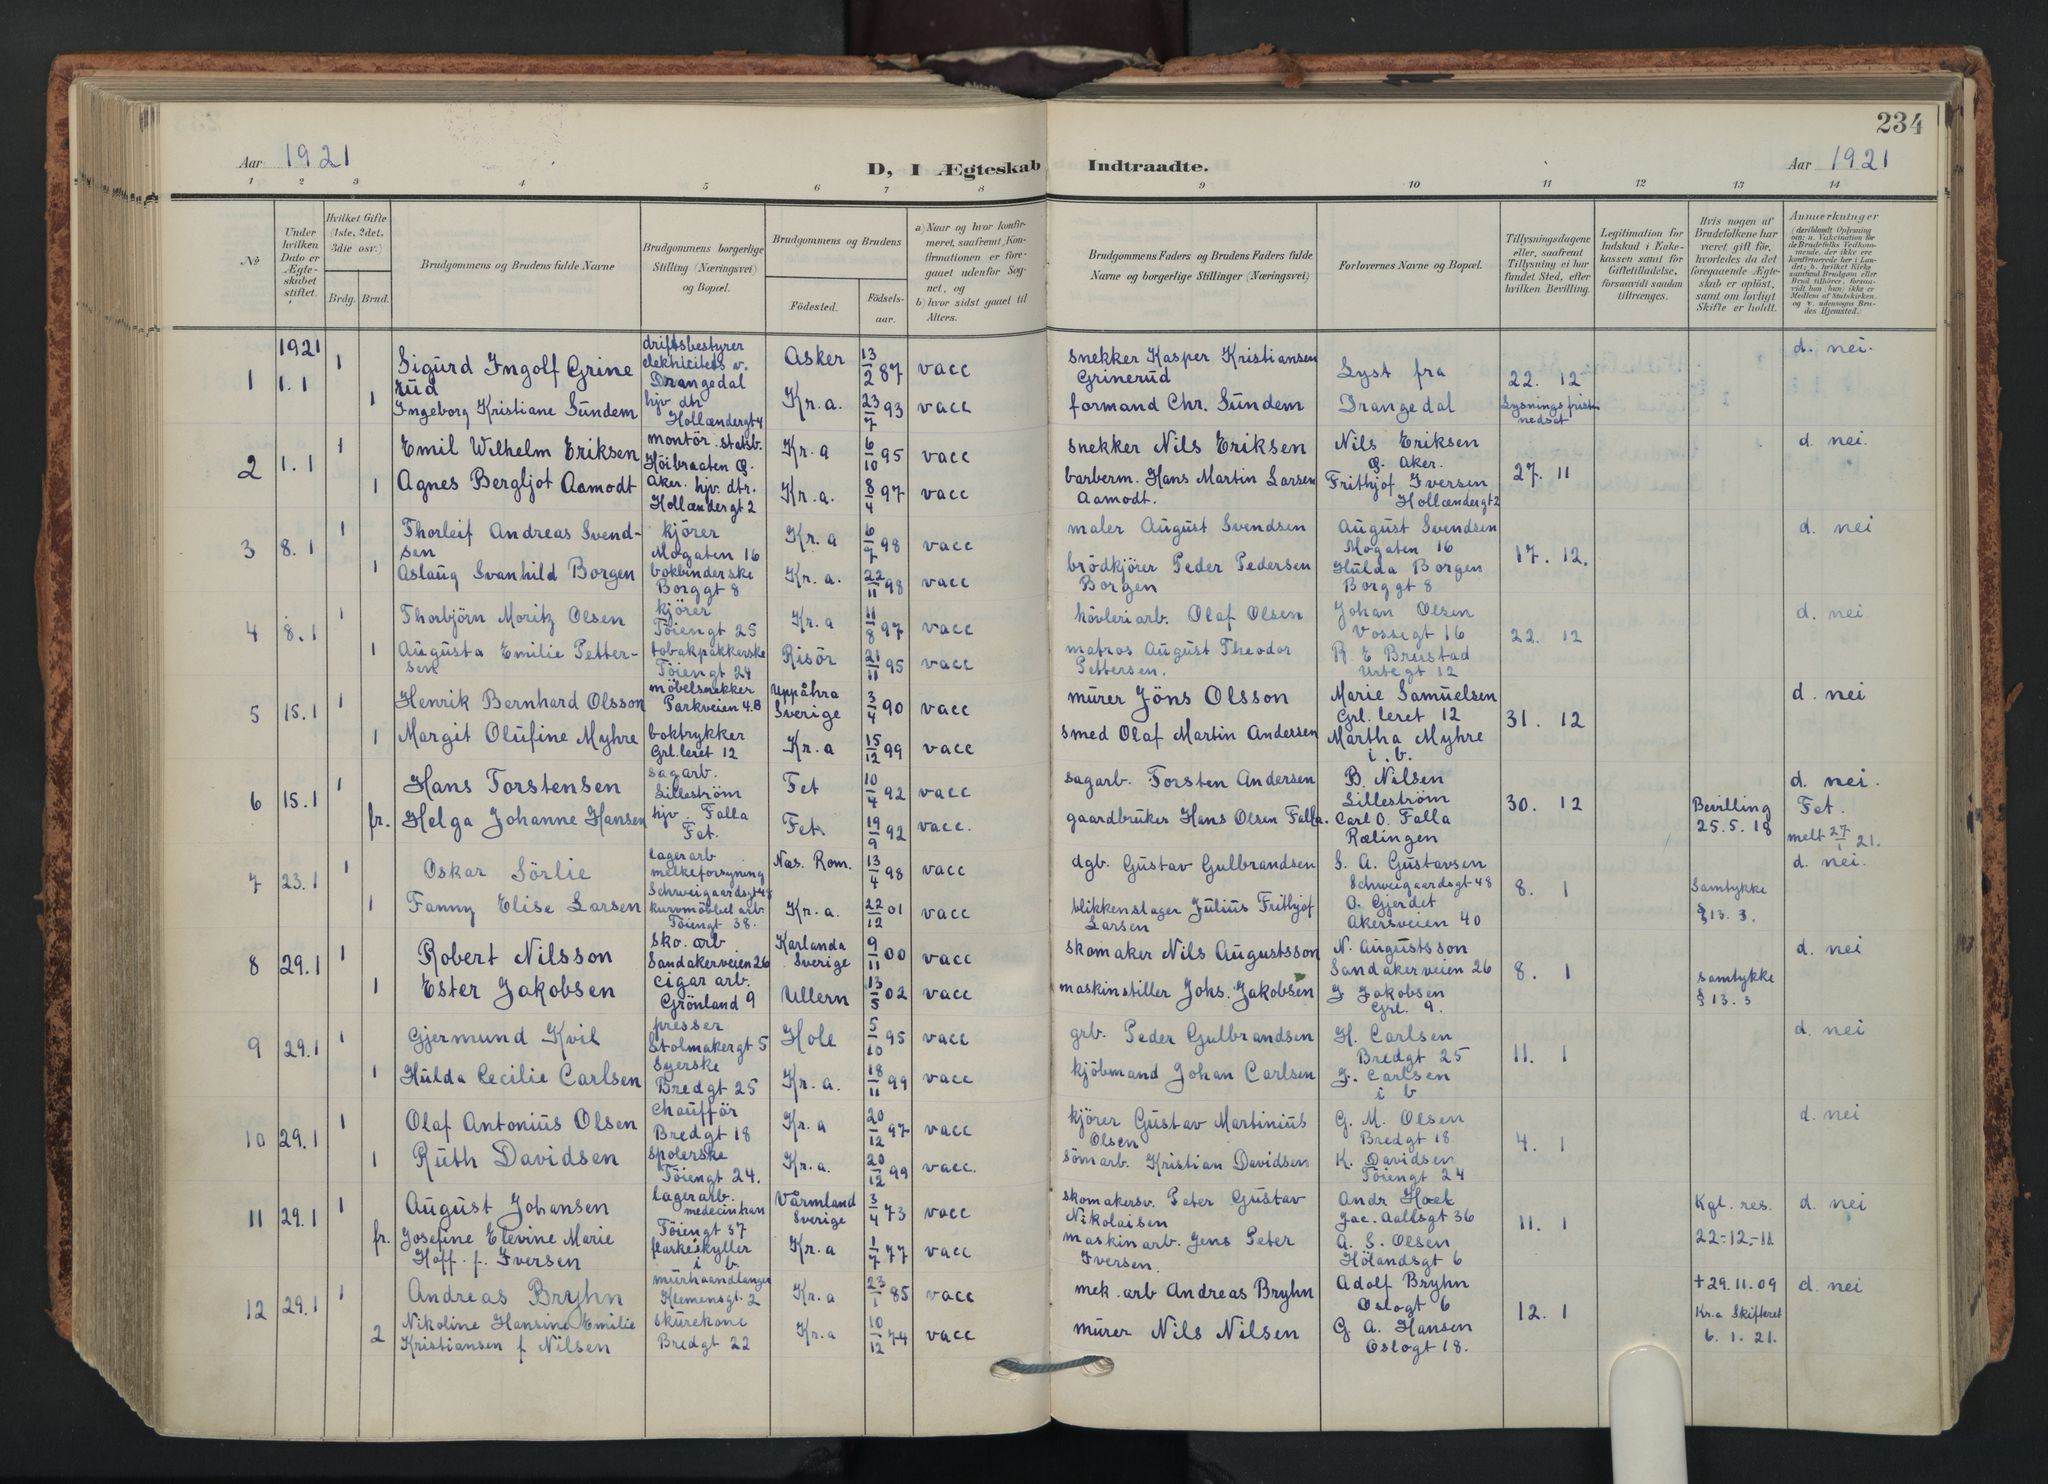 234
Aar 1921
D, I Ægteskab Indtraadte.
Aar 1921
1 2 3 4 5 6 7 8 9 10 11 12 13 14
No
Under hvilken Dato er Ægteskabet stiftet.
Hvilket Gifte (1ste, 2det, 3die osv.)
Brdg. Brud.
Brudgommens og Brudens fulde Navne
Brudgommens borgerlige Stilling (Næringsvei) og Bopæl.
Brudgommens og Brudens
Fødested. Fødselsaar.
a) Naar og hvor konfirmeret, saafremt Konfirmationen er foregaaet udenfor Sognet, og
b) hvor sidst gaaet til Alters.
Brudgommens Faders og Brudens Faders fulde Navne og borgerlige Stillinger (Næringsvei)
Forlovernes Navne og Bopæl.
Tillysningsdagene eller, saafremt Tillysning ei har fundet Sted, efter hvilken Bevilling.
Legitimation for Indskud i Enkekassen samt for Giftetilladelse, forsaavidt saadan tiltrænges.
Hvis nogen af Brudefolkene har været gift før, hvorledes da det foregaaende Ægteskab er opløst, samt om lovligt Skifte er holdt.
Anmerkninger
(deriblandt Oplysning om: a. Vakcination for de Brudefolks Vedkommende, der ikke ere konfirmerede her i Landet; b. hvilket Kirkesamfund Brudgom eller Brud tilhører, forsaavidt han (hun) ikke er Medlem af Statskirken, og c. udensogns Brudes Hjemsted.)
1921
1 1.1 1 Sigurd Ingolf Grinerud driftsbestyrer elektricitets v. Drangedal Asker 13/2 87 vacc snekker Kasper Kristiansen Grinerud Lyst fra 22. 12 d. nei.
1 Ingeborg Kristiane Sundem hjv dtr Hollændergt 4 Kr.a. 23/7 93 vacc formand Chr. Sundem Drangedal Lysningsfrist nedsat
2 1.1 1 Emil Wilhelm Eriksen montör statsb. Höibraaten Ø. Aker. Kr.a 6/10 95 vacc snekker Nils Eriksen Nils Eriksen Ø. Aker. 27. 11 d. nei.
1 Agnes Bergljot Aamodt hjv. dtr. Hollændergt 2 Kr.a. 8/4 97 vacc barberm. Hans Martin Larsen Aamodt. Frithjof Iversen Hollændergt 2
3 8.1 1 Thorleif Andreas Svendsen kjörer Mogaten 16 Kr.a 6/9 98 vacc maler August Svendsen August Svendsen Mogaten 16 17. 12. d. nei
1 Aslaug Svanhild Borgen bokbinderske Borggt 8 Kr.a. 22/11 98 vacc brödkjörer Peder Pedersen Borgen Hulda Borgen Borggt 8
4 8.1 1 Thorbjörn Moritz Olsen kjörer Töiengt 25 Kr.a 11/8 97 vacc hövleriarb. Olaf Olsen Johan Olsen Vossegt 16 22. 12 d. nei
1 Augusta Emilie Pettersen tobakpakkerske Töiengt 24 Risör 21/11 95 vacc matros August Theodor Pettersen. R. E Brustad Urtegt 12
5 15.1 1 Henrik Bernhard Olsson möbelsnekker Parkveien 4.B Uppåhra Sverige 3/4 90 vacc murer Jöns Olsson Marie Samuelsen Grl. leret 12 31. 12 d. nei
1 Margit Olufine Myhre boktrykker Grl. leret 12 Kr.a 15/12 99 vacc smed Olaf Martin Andersen Martha Myhre i. b.
6 15.1 1 Hans Torstensen sagarb. Lilleström Fet 10/4 92 vacc sagarb. Torsten Andersen B. Nilsen Lilleström 30. 12 d. nei.
fr. Helga Johanne Hansen hjv. Falla Fet. Fet. 19/9 92 vacc. gaardbruker Hans Olsen Falla. Carl O. Falla Rælingen Bevilling 25.5.18 Fet. melt 27/1 21.
7 23.1 1 Oskar Sörlie lagerarb melkeforsyning Schweigaardsgt 48 Næs. Rom. 13/4 98 vacc dgb. Gustav Gulbrandsen S. A. Gustavsen Schweigaardsgt 48 8. 1 Samtykke § 13. 3. d. nei.
1 Fanny Elise Larsen kurvmöbbel arb. Töiengt 38. Kr.a. 22/12 01 vacc blikkenslager Julius Frithjof Larsen O. Gjerdet Akersveien 40
8 29.1 1 Robert Nilsson sko. arb Sandakerveien 26 Karlanda Sverige 9/11 00 vacc skomaker Nils Augustsson N. Augustsson Sandakerveien 26 8. 1 samtykke § 13. 3 d. nei
1 Ester Jakobsen cigar arb. Grönland 9 Ullern 13/5 02 vacc maskinstiller Johs. Jakobsen J. Jakobsen Grl. 9.
9 29.1 1 Gjermund Kvil presser Stolmakergt 5 Hole 5/10 95 vacc grb. Peder Gulbrandsen H. Carlsen Bredgt 25 11. 1 d. nei
1 Hulda Cecilie Carlsen syerske Bredgt 25 Kr.a. 18/11 99 vacc kjöbmand Johan Carlsen J. Carlsen i b
10 29.1 1 Olaf Antonius Olsen chaufför Bredgt 18 Kr.a 20/12 97 vacc kjörer Gustav Martinius Olsen G. M. Olsen Bredgt 18 4. 1 d. nei
1 Ruth Davidsen spolerske Töiengt 24. Kr.a. 20/12 99 vacc. sömarb. Kristian Davidsen K. Davidsen Töiengt 24
11 29.1 1 August Johansen lagerarb. medecinhan Töiengt 37 Värmland Sverige 3/4 73 vacc skomakersv. Peter Gustav Nikolaisen Andr Hoel Jac. Aallsgt 36 11. 1 Kgl. res. 22-12.-11. d. nei
fr. Josefine Elevine Marie Hoff. f. Iversen flaskeskyller i b. Kr.a 1/7 77 vacc maskinarb. Jens Peter Iversen. A. S. Olsen Hölandsgt 6
12 29.1 1 Andreas Bryhn murhaandlanger Klemensgt. 2 Kr.a 23/1 85 vacc mek. arb Andreas Bryhn Adolf Bryhn Oslogt 6 12. 1 + 29.11.09 d. nei
2 Nikoline Hansine Emilie Kristiansen f Nilsen skurekone Bredgt 22 Kr.a 10/12 74 vacc murer Nils Nilsen G A. Hansen Oslogt 18. Kr.a Skifteret 6. 1. 21.